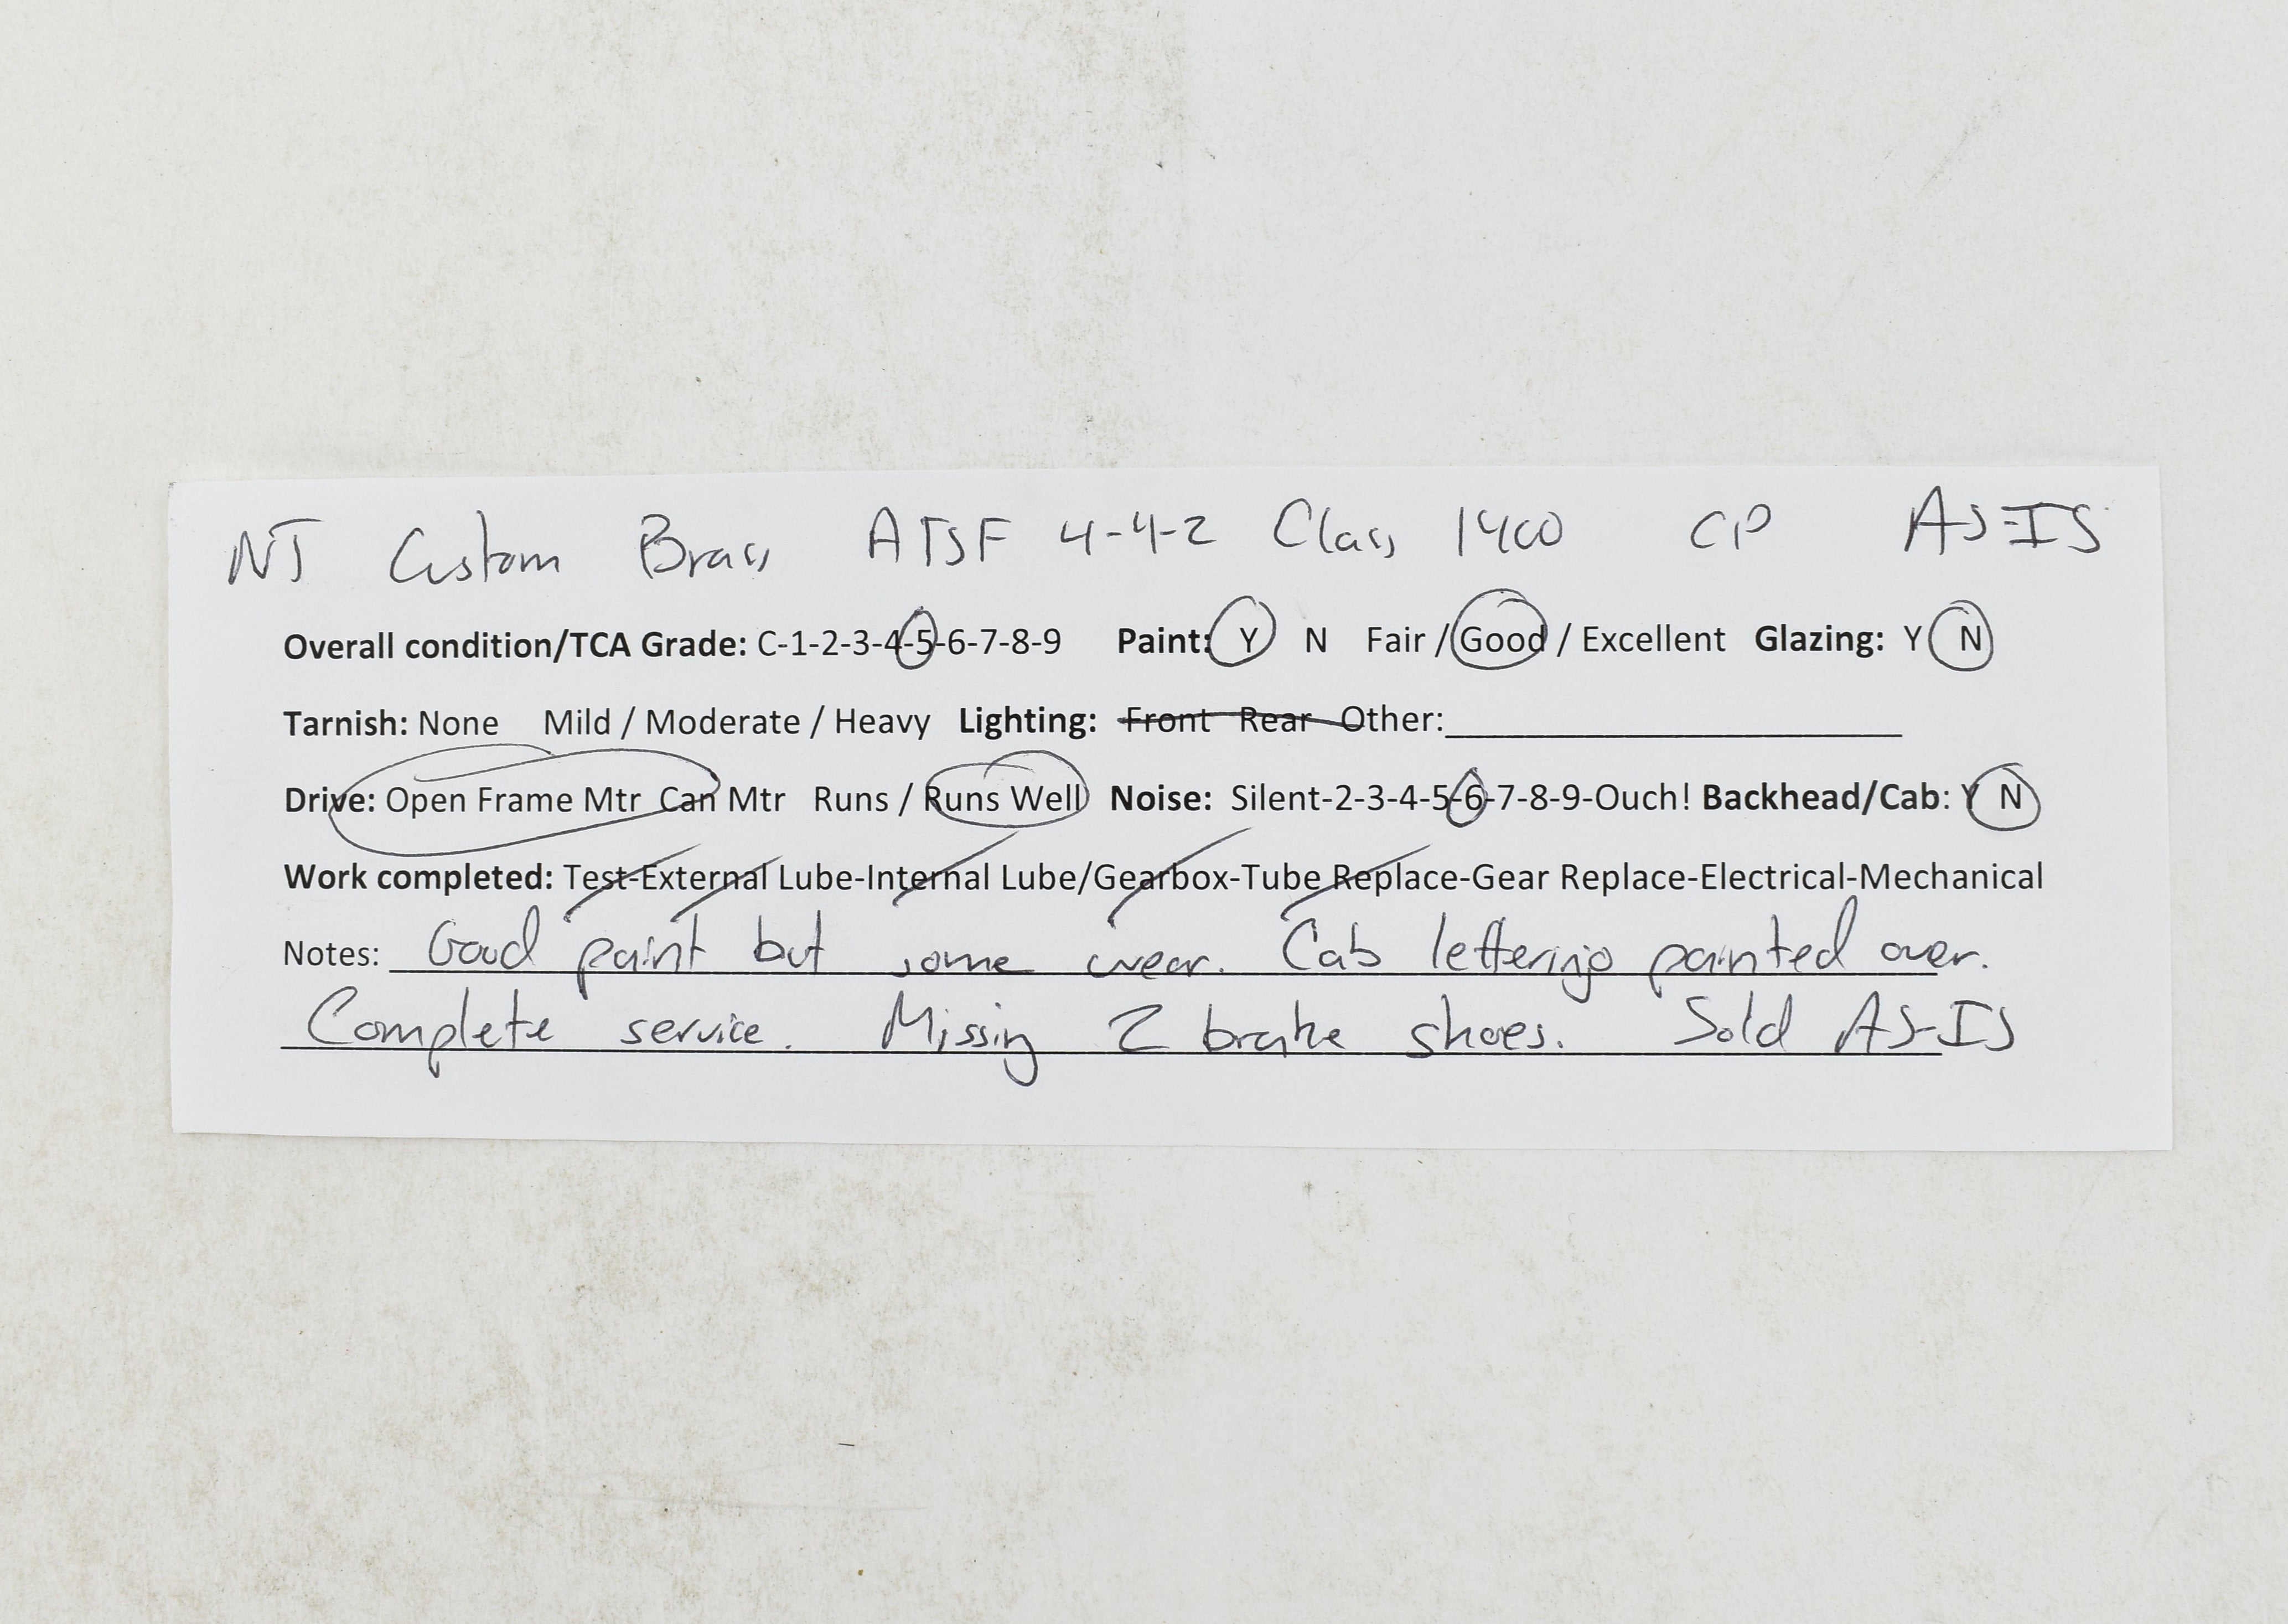 NJ Custom Brass ATSF 4-4-2 Class 1400 CP AS-IS
Overall condition/TCA Grade: C-1-2-3-4-5-6-7-8-9 Paint: Y N Fair / Good / Excellent Glazing: Y N
Tarnish: None Mild / Moderate / Heavy Lighting: Front Rear Other:
Drive: Open Frame Mtr Can Mtr Runs / Runs Well Noise: Silent-2-3-4-5-6-7-8-9-Ouch! Backhead/Cab: Y N
Work completed: Test-External Lube-Internal Lube/Gearbox-Tube Replace-Gear Replace-Electrical-Mechanical
Notes: Good paint but some wear. Cab lettering painted over.
Complete service. Missing 2 brake shoes. Sold AS-IS